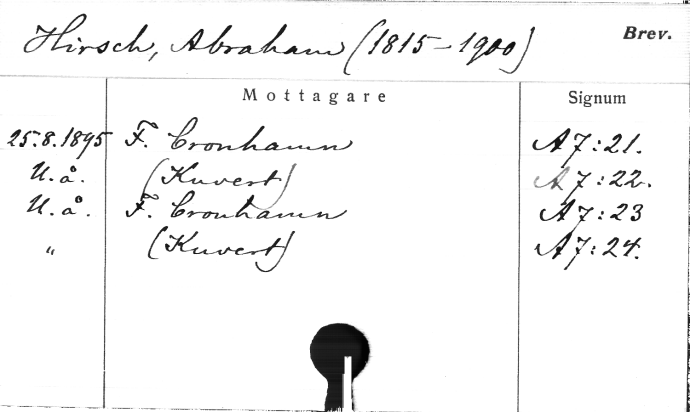 Hirsch, Abraham (1815-1900) Brev.
Mottagare Signum
25.8.1895 F. Cronhamn A7:21.
U.å. (Kuvert) A7:22.
U.å. F. Cronhamn A7:23
" (Kuvert) A7:24.